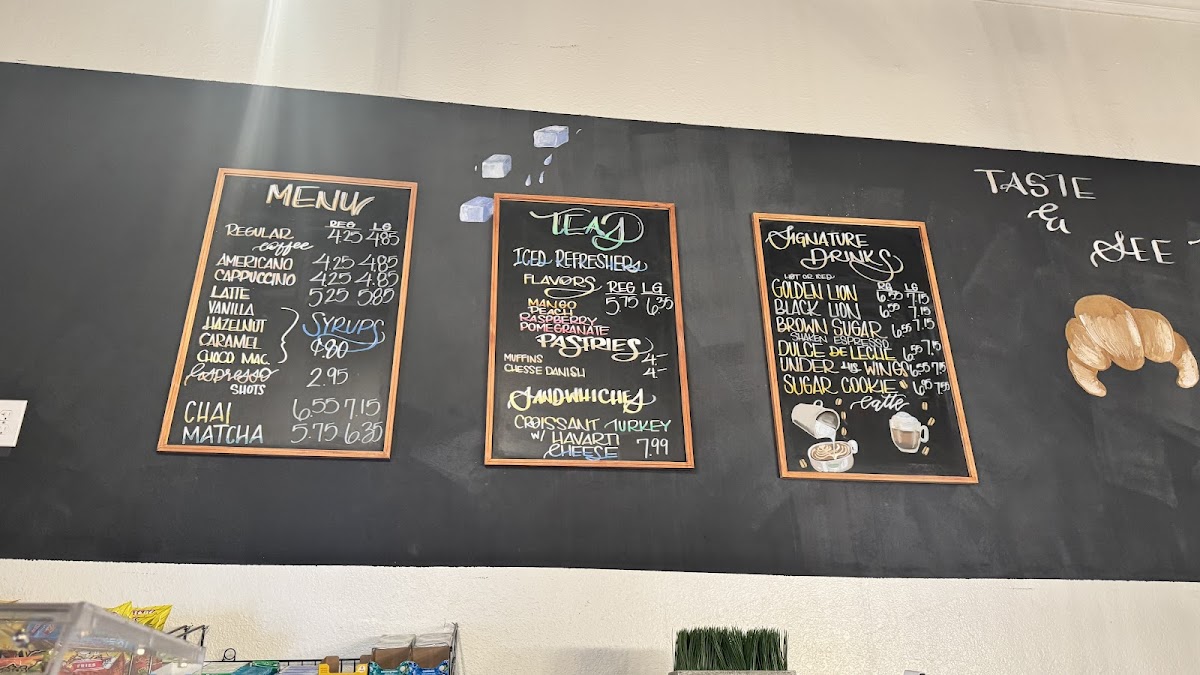 MENU
REG LG
REGULAR coffee 4.25 4.85
AMERICANO 4.25 4.85
CAPPUCCINO 4.25 4.85
LATTE 5.25 5.85
VANILLA
HAZELNUT
CARAMEL
CHOCO MAC.
SYRUPS
¢80
Espresso SHOTS 2.95
CHAI 6.55 7.15
MATCHA 5.75 6.35
TEAS
ICED REFRESHERS
FLAVORS REG LG
5.75 6.35
MANGO
PEACH
RASPBERRY
POMEGRANATE
PASTRIES
MUFFINS 4-
CHESSE DANISH 4-
SANDWHICHES
CROISSANT TURKEY
W/ HAVARTI
CHEESE 7.99
SIGNATURE
DRINKS
HOT OR ICED
RG LG
GOLDEN LION 6.55 7.15
BLACK LION 6.55 7.15
BROWN SUGAR 6.55 7.15
SHAKEN ESPRESSO
DULCE DE LECHE 6.55 7.15
UNDER HIS WINGS 6.55 7.15
SUGAR COOKIE 6.95 7.55
latte
TASTE
&
SEE